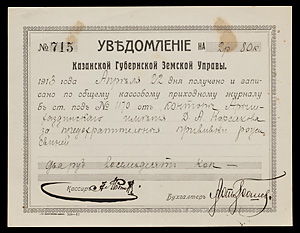 № 715 УВѢДОМЛЕНІЕ НА 2р 80к
Казанской Губернской Земской Управы.
1913 года Апрѣля 22 дня получено и запи-
сано по общему кассовому приходному журналу
въ ст. подъ № 1170 отъ конторы
имѣнія
за предохранительныя прививки
два руб восемьдесятъ коп —
Кассиръ
Бухгалтеръ